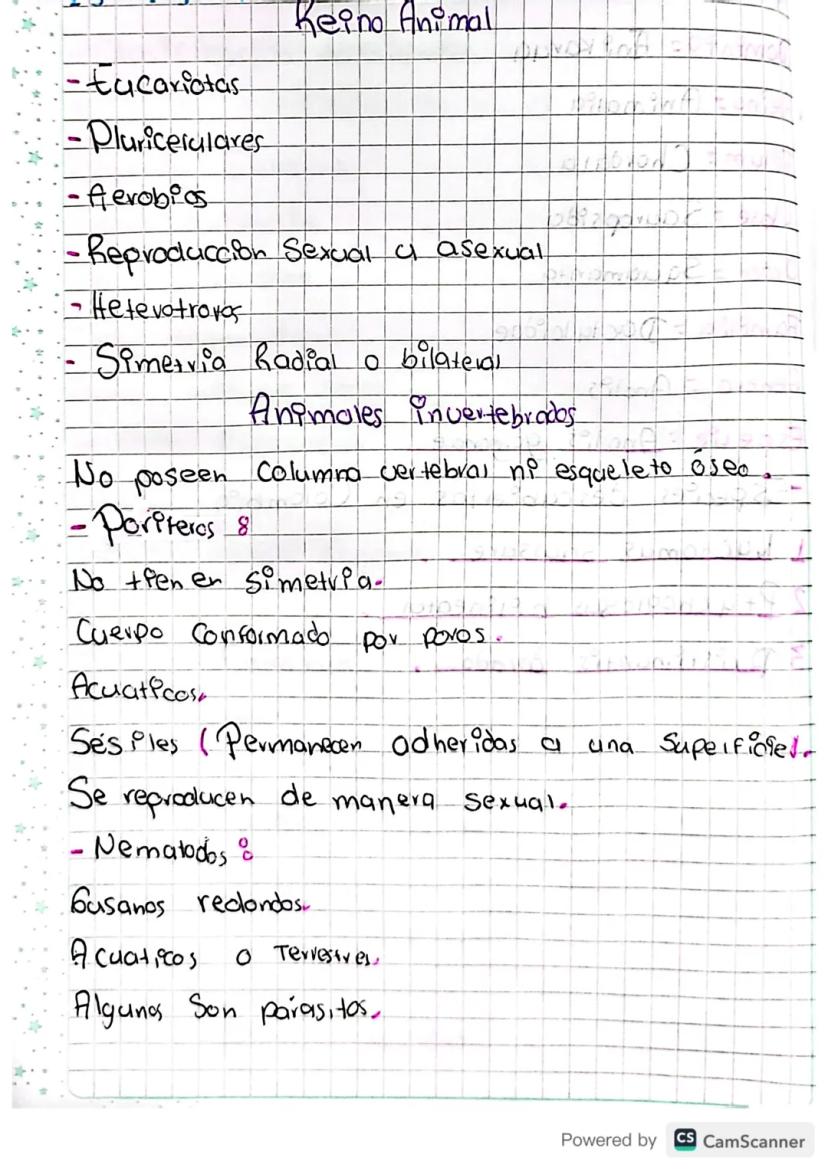 Reino Animal
- Eucariotas
- Pluricerulares
- Aerobios
- Reproducción Sexual y asexual
- Hetevotrovos
- Simetria Radial o bilateral
Animales invertebrados
No poseen Columna vertebral ni esqueleto óseo.
- Poriferos :
No tienen simetria.
Cuerpo Conformado por poros.
Acuaticos.
Sésiles (Permanecen adheridas a una Superificie).
Se reproducen de manera sexual.
- Nematodos :
Gusanos redondos.
Acuaticos o Terrestres.
Algunos Son parásitos.
Powered by CS CamScanner